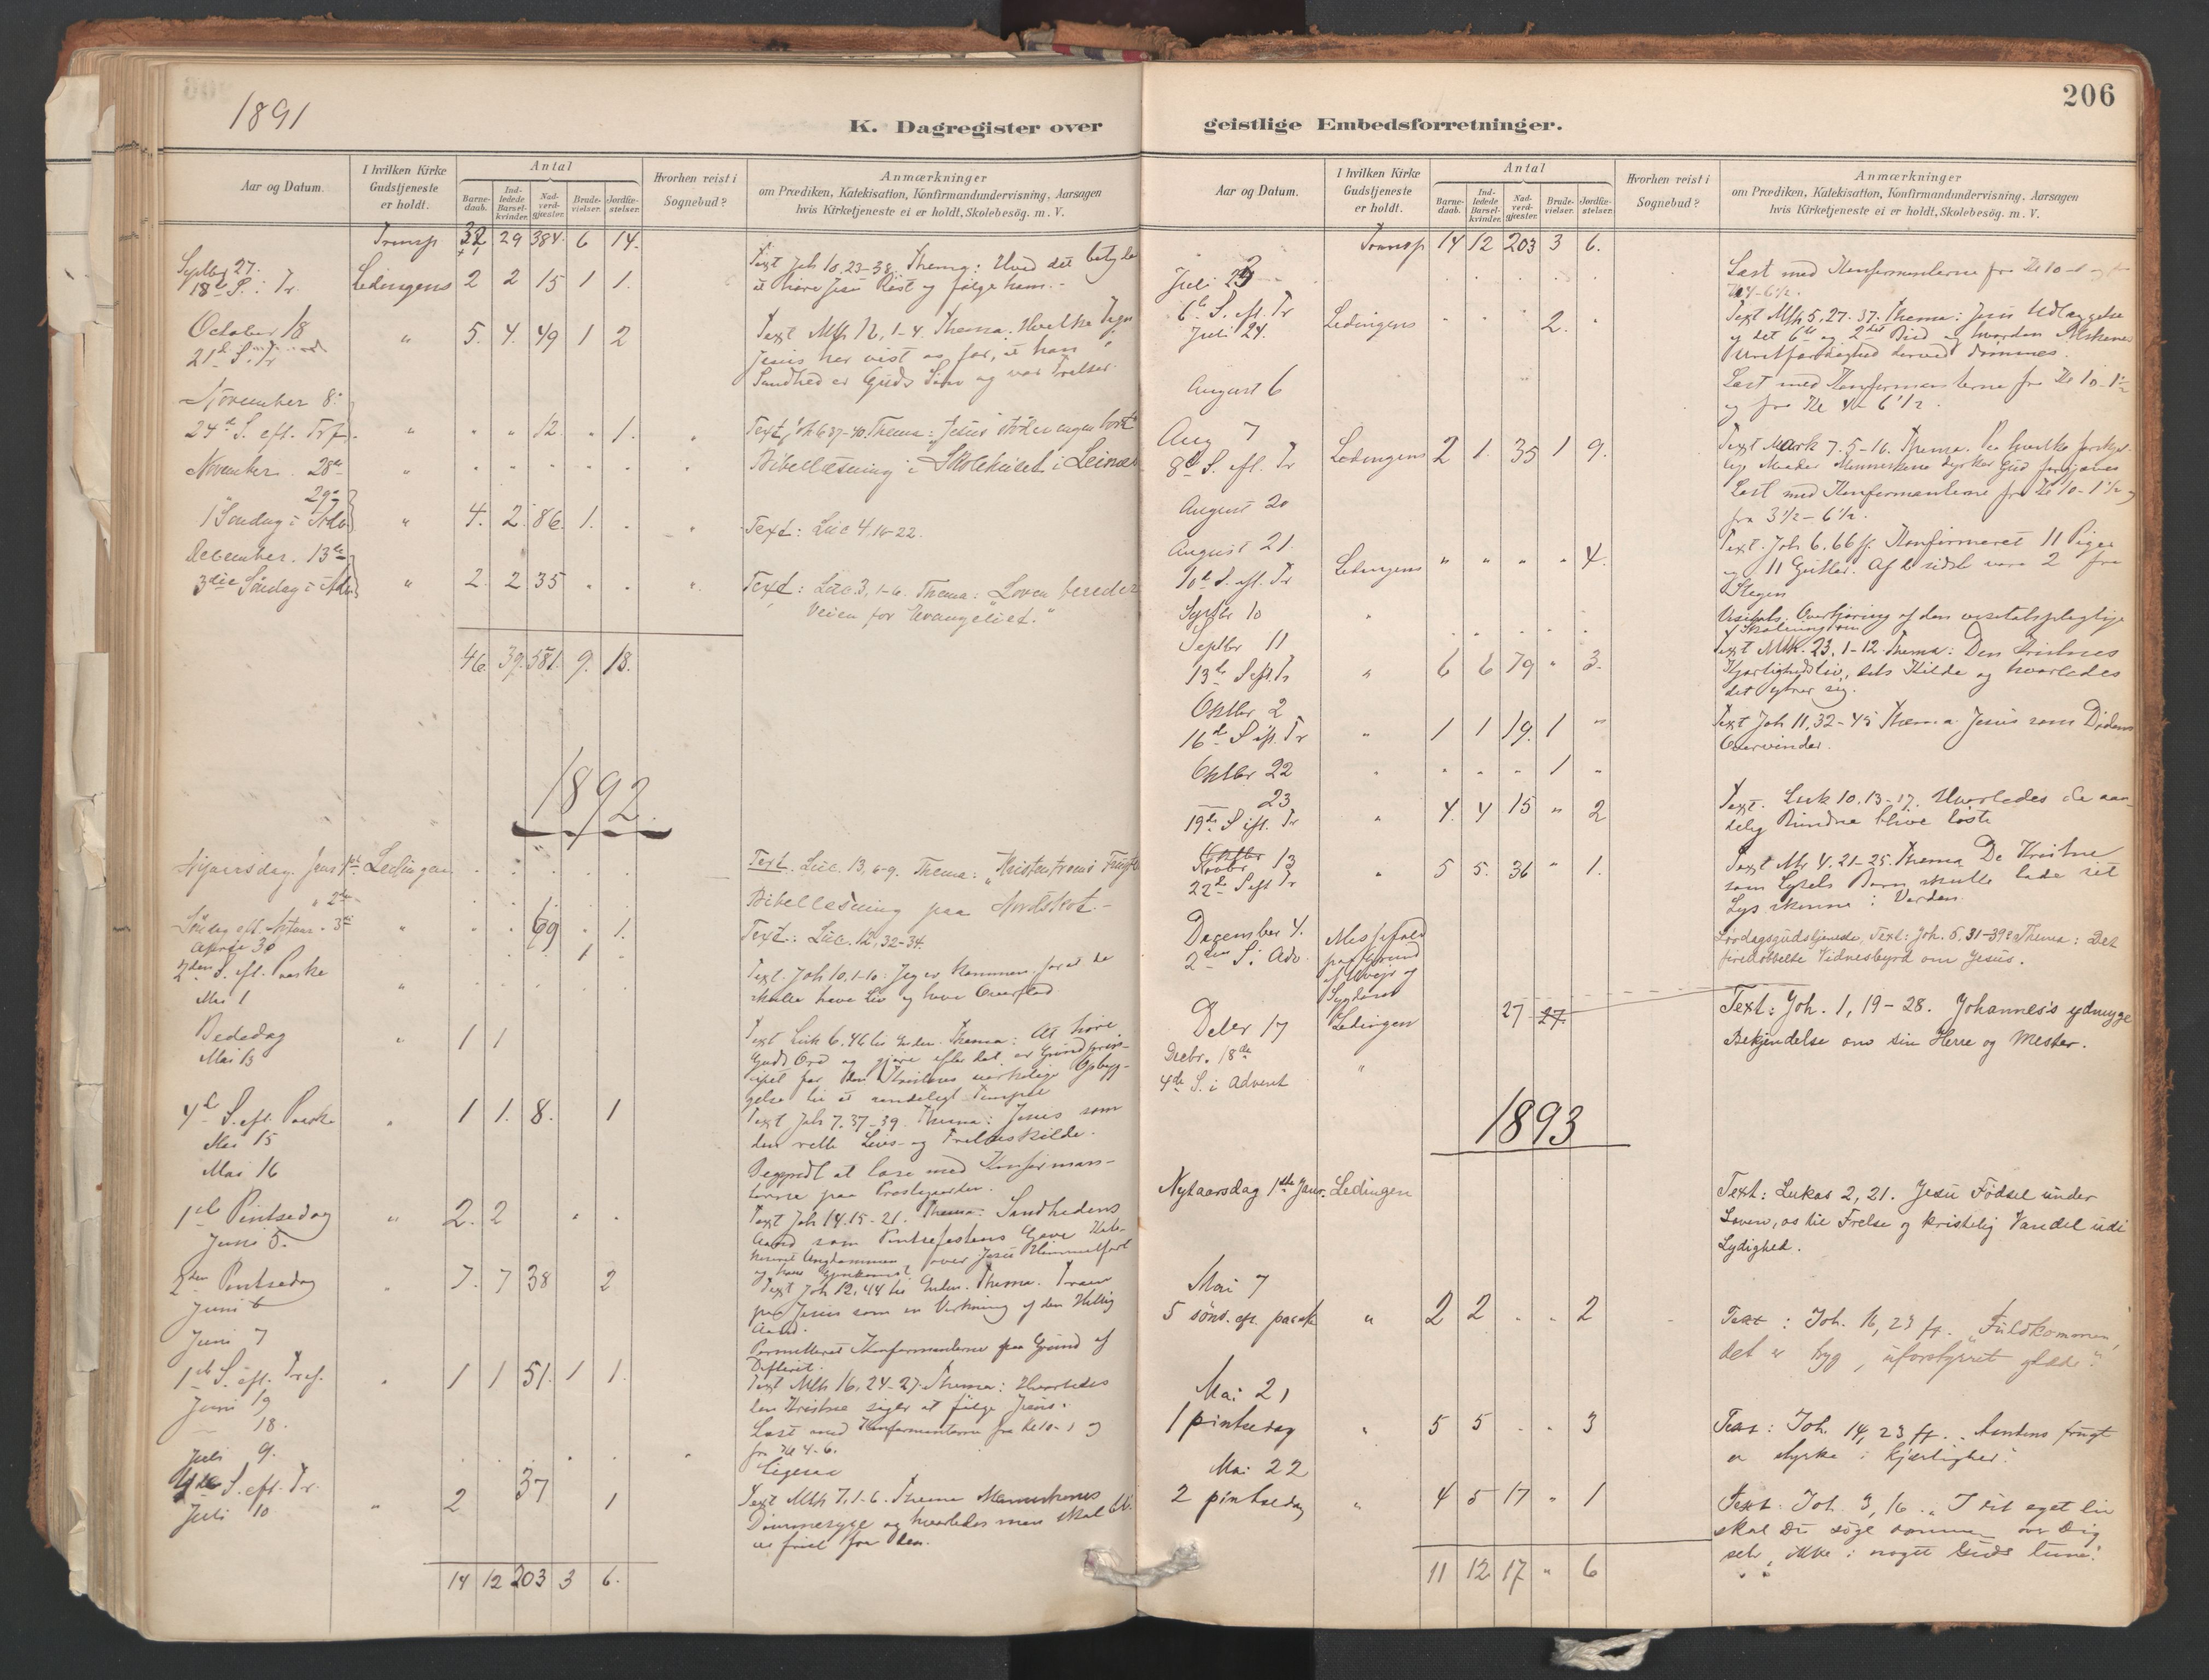 1891
K. Dagregister over
Aar og Datum.
I hvilken Kirke
Gudstjeneste
er holdt.
Antal
Barne-
daab.
Ind-
ledede
Barsel-
kvinder.
Nad-
verd-
gjæster.
Brude-
vielser.
Jordfæ-
stelser.
Hvorhen reist i
Sognebud?
Anmærkninger
om Prædiken, Katekisation, Konfirmandundervisning, Aarsagen
hvis Kirketjeneste ei er holdt, Skolebesög. m. V.
Transp 32 29 384. 6 14.
Septbr 27.
18de S. i Tr. Ledingens 2 2 15 1 1.
Text Joh 10.23-38. Thema: Hvad det betyder
at høre Jesu Røst og følge ham.-
October 18
21de S. Tr " 5. 4. 49 1 2
Text Mth 12, 1-4. Thema. Hvilke Tegn
Jesus har vist os for, at han i
Sandhed er Guds Søn og vor Frelser.
November 8.
24de S. eft. Tref. " " " 12. " 1. "
Text, Joh 6 37-40. Thema: "Jesus støder ingen bort"
November. 28de "
Bibellæsning i Skolehuset i Leines
29de
1 Søndag i Adv. " 4. 2. 86. 1. . "
Text: Luc 4, 16-22.
December. 13de
3die Søndag i Adv. " 2. 2 35 " " "
Text: Luc. 3, 1-6. Thema: Loven bereder
Veien for Evangeliet."
46. 39. 581. 9. 18.
1892.
Nyaarsdag. Jan 1ste Ledingen
Text. Luc. 13, 6-9. Thema: "Kristentroens Frugt
" 2den
Bibellæsning paa Nordskot.-
Søndag eft. Nytaar. 3die " . . 69 . 1.
Text: Luc. 12, 32-34.
April 30 1
2den S. eft. Paaske
Mai 1 "
Text. Joh 10.1-10: Jeg er kommen for at de
skulle have Liv og have Overflod
Bededag
Mai 13 " 1 1
Text Luk 6.46 til Enden. Thema: At høre
Guds Ord og gjøre efter det er Grundprin-
cipet for den Kristnes virkelige Opbyg-
gelse til et aandeligt Tempel
4de S. eft. Paaske
Mai 15 " 1 1. 8. 1
Text Joh 7.37-39. Thema: Jesus som
den rette Livs- og Frelseskilde.
Mai 16
Begyndt at læse med Konfirman-
terne paa Prostgaarden.
1ste Pintsedag
Juni 5. " 2. 2 " .
Text Joh 14.15-21. Thema: Sandhedens
Aand som Pintsefestens Gave
over Jesu Himmelfart
2den Pintsedag
Juni 6 " 7. 7 38 2
Text Joh 12.44 til Enden. Thema. Troen
paa Jesus som en Virkning af den Hellig
Aand.
Juni 7
Permitteret Konfirmanterne paa Grund af
Difterit.
1ste S. eft. Tref.
Juni 19 " 1 1 51. 1 1.
Text Mth 16, 24-27. Thema: Hvorledes
den Kristne siger at følge Jesus.
18.
Læst med Konfirmanterne fra Kl 10-1 og
fra Kl 4-6.
Juli 9.
Ligesaa
4de S. eft. Tr.
Juli 10 " 2 37 1
Text Mth 7.1-6. Thema Menneskenes
Dømmesyge og hvorledes man skal bli-
ve friet fra den.
14 12 203 3 6.
206
geistlige Embedsforretninger.
Aar og Datum.
I hvilken Kirke
Gudstjeneste
er holdt.
Antal
Barne-
daab.
Ind-
ledede
Barsel-
kvinder.
Nad-
verd-
gjæster.
Brude-
vielser.
Jordfæ-
stelser.
Hvorhen reist i
Sognebud?
Anmærkninger
om Prædiken, Katekisation, Konfirmandundervisning, Aarsagen
hvis Kirketjeneste ei er holdt, Skolebesög. m. V.
Transp 14 12 203 3 6.
Juli 23
Læst med Konfirmanterne fra Kl 10-1 og fra
Kl 4-6½.
6te S. eft. Tr
Juli 24. Ledingens " " . 2. "
Text Mth 5, 27-37. Thema: Jesu Udlæggelse
af det 6te og 2det Bud og hvordan Mskenes
Uretfærdighed derved dømmes.
August 6
Læst med Konfirmanterne fra Kl 10-1½
og fra Kl 4-6½.
Aug 7
8de S. eft. Tr Ledingens 2 1. 35 1 9.
Text Mark 7.5-16. Thema. Paa hvilke forskjel-
lige Maader Menneskene dyrker Gud forgjæves
August 20
Læst med Konfirmanterne fra Kl 10-1½ og
fra 3½-6½.
August 21.
10de S. eft. Tr Ledingens " " " " 4.
Text. Joh 6.66 ff. Konfirmeret 11 Piger
og 11 Gutter. Af de sidste vare 2 fra
Stegen
Septbr 10
Visitats. Overhøring af den visitatspligtige
Septbr 11
13de S eft. Tr " 6 6 79 " 3.
Text Mth. 23, 1-12. Thema: Den kristnes
Kjærlighedsliv, dets Kilde og hvorledes
det ytrer sig.
Oktbr 2
16de S eft. Tr " 1 1 19. 1 "
Text Joh 11, 32-45 Thema Jesus som Dødens
Overvinder.
Oktbr 22 " " " " 1 "
23
19de S eft. Tr " 4. 4 15 " 2
Text. Luk 10.13-17. Hvorledes de aan-
delig Bundne blive løste
Oktbr
Novbr 13
22de S eft Tr " 5 5. 36 " 1.
Text Mr 4.21-25. Thema De Kristne
som Lysets Børn skulle lade sit
Lys skinne i Verden.
December 4.
2den S. i Adv. Messefald
paa Grund
af Uveir og
Sygdom
Lørdagsgudstjeneste, Text: Joh. 5, 31-39. Thema: Det
firedobbelte Vidnesbyrd om Jesus.
Decbr 17 Ledingen 27 27.
Text: Joh. 1, 19-28. Johannes's ydmyge
Bekjendelse om sin Herre og Mester.
Decbr. 18de
4de S. i Advent "
1893
Nytaarsdag 1ste Janr. Ledingen
Text: Lukas 2, 21. Jesu Fødsel under
Loven, os til Frelse og kristelig Vandel udi
Lydighed.
Mai 7
5 sønd. eft. paask " 2 2 . . 2
Text: Joh. 16, 23 ff. "Fuldkommen,
det er tryg, uforstyrret glæde."
Mai 21
1 pintsedag " 5 5 . . 3
Text: Joh. 14, 23 ff. "Aandens frugt
er styrke i kjærlighed."
Mai 22
2 pintsedag " 4 5 17 " 1
Text. Joh. 3, 16. "I dit eget liv
skal du søge dommen over dig
selv, ikke i noget Guds lune."
11 12 17 " 6